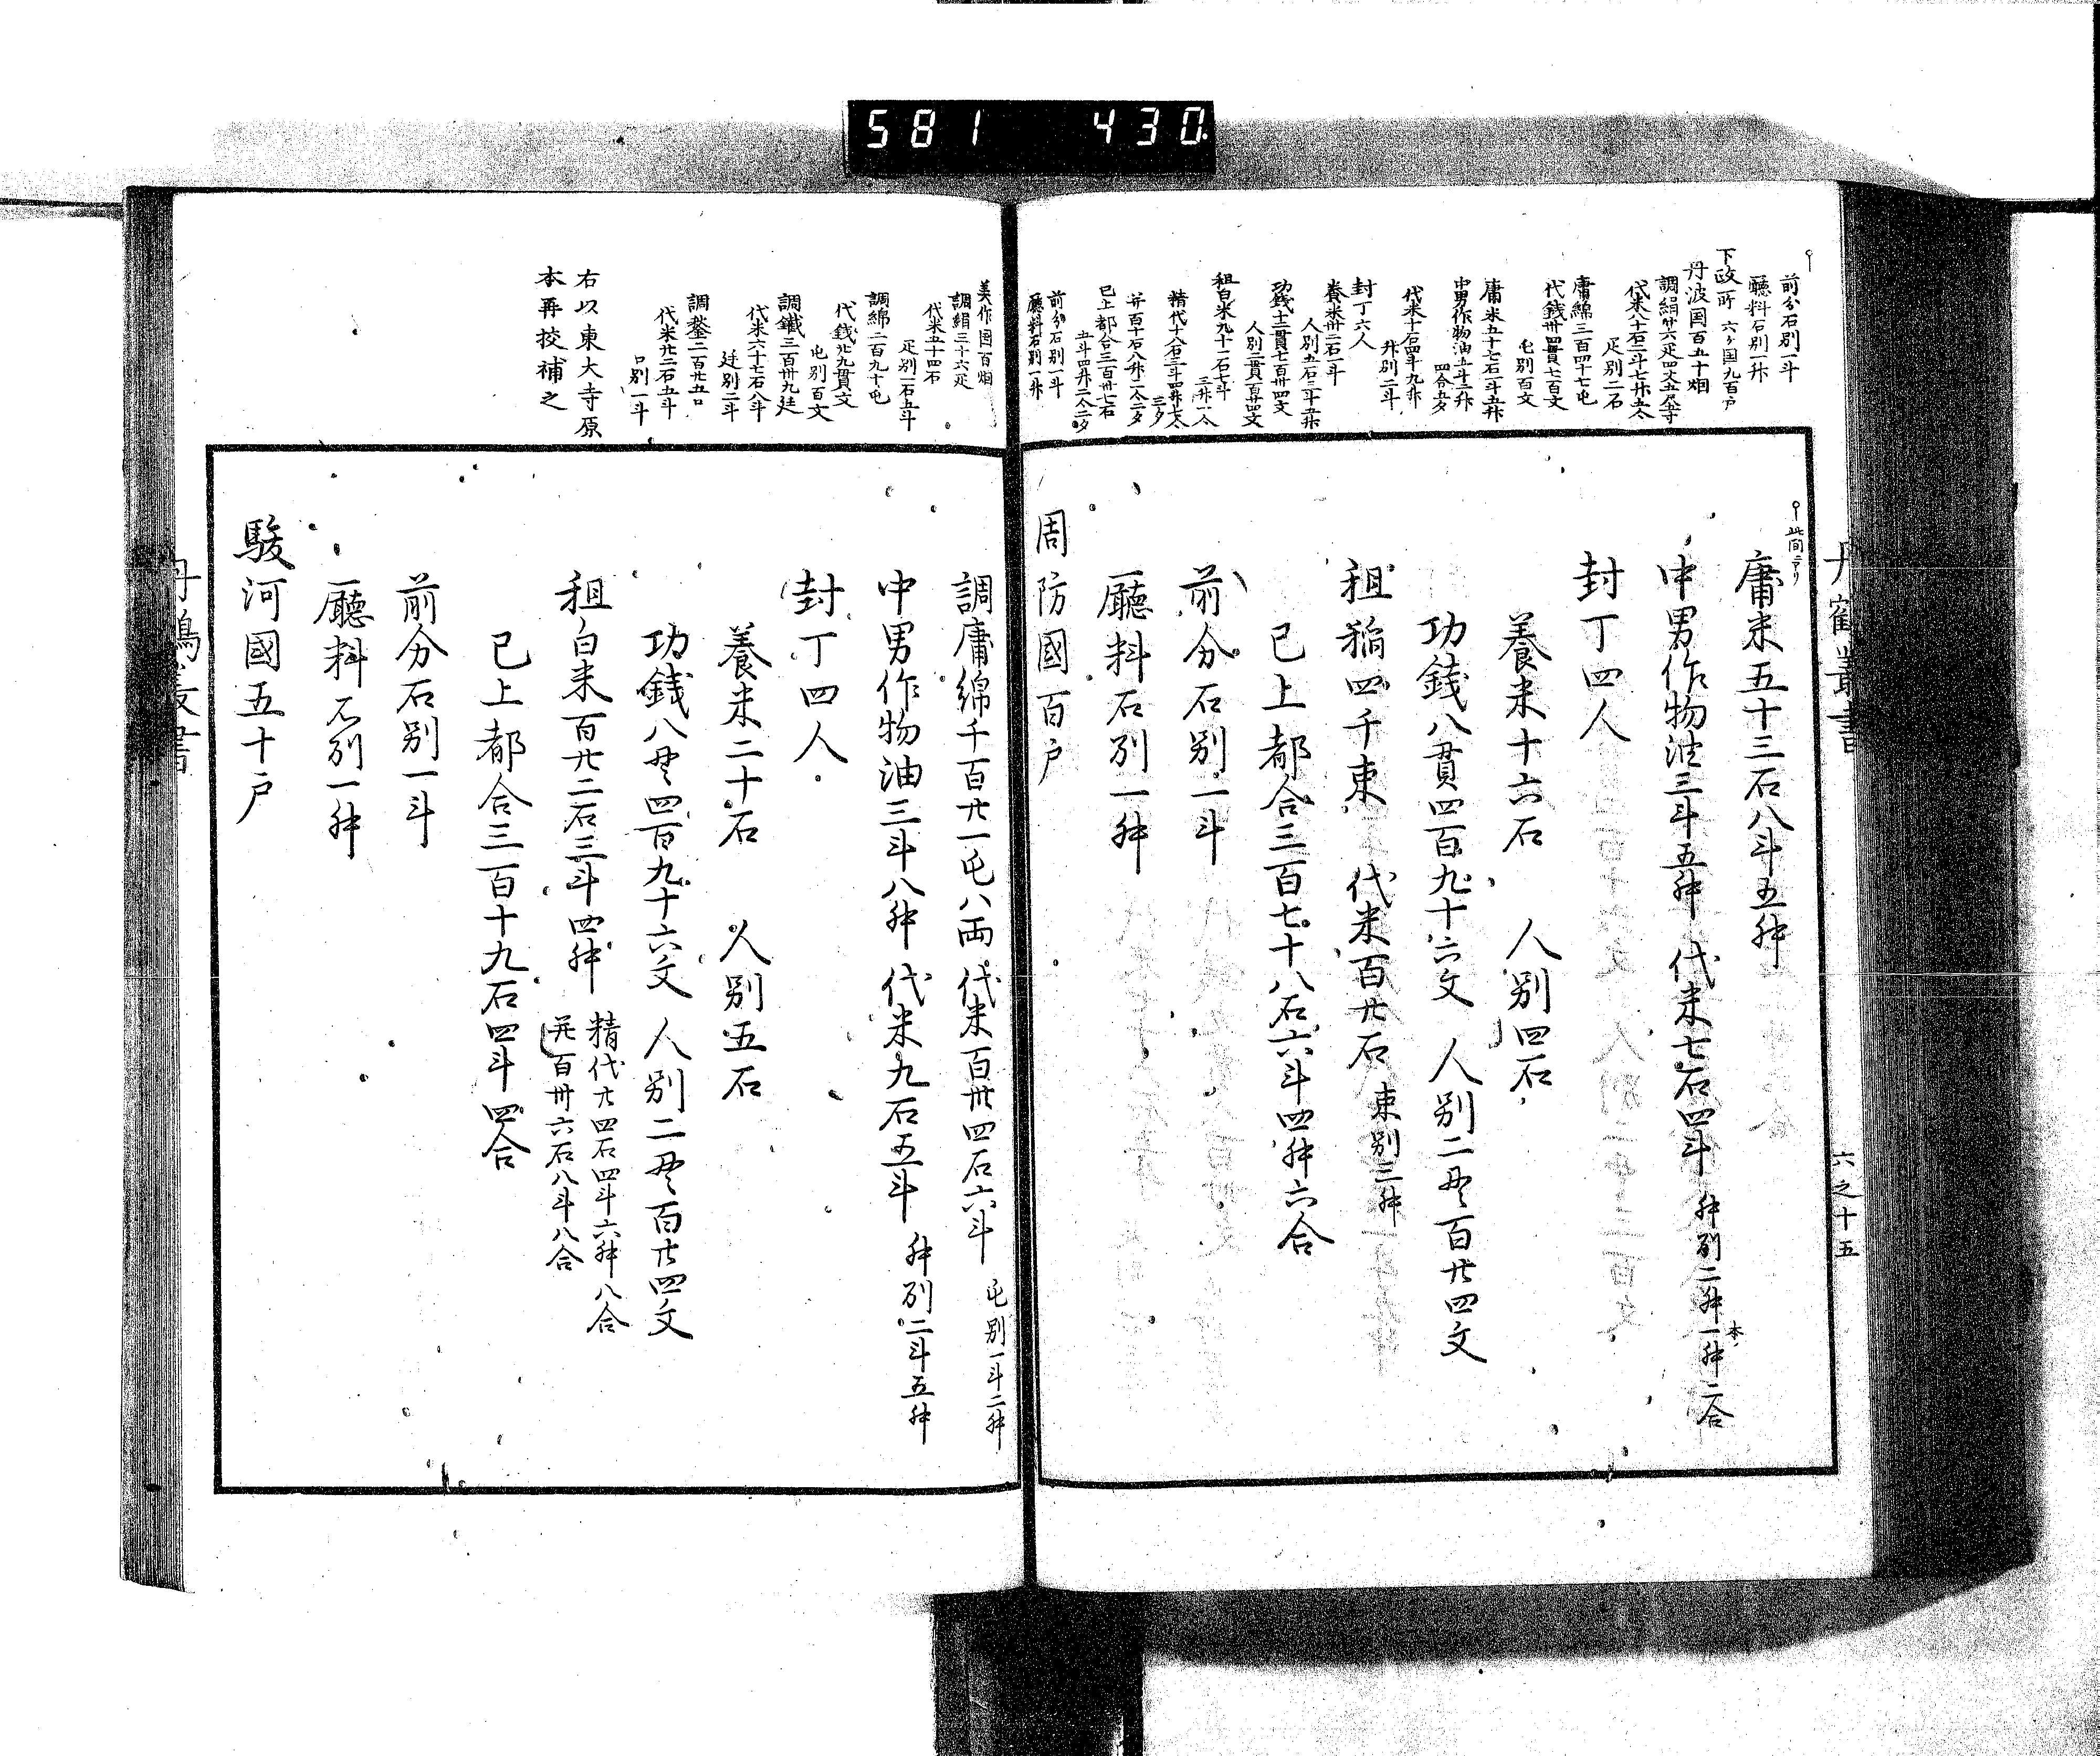 581 430
前分石別一斗
廳料石別一升
下政所 六ケ国九百戸
丹波国百五十烟
調絹廿六疋四丈五尺寸
代米八十石二斗七升五合
疋別二石
庸綿三百四十七屯
代錢卅四貫七百文
屯別百文
庸米五十七石一斗五升
中男作物油五斗二升
四合五夕
代米十石四斗九升
升別二斗
封丁六人
養米卅二石一斗
人別五石三斗五升
功錢十二貫七百卅四文
人別二貫百廿四文
租白米九十一石七斗
三升一合
精代十八石三斗四升七合
三夕
并百十石八升二合二夕
已上都合三百卅七石
五斗四升二合二夕
前分石別一斗
廳料石別一升
丹鶴叢書
六之十五
此間ニアリ
庸米五十三石八斗五升
中男作物油三斗五升 代米七石四斗 升別二升一升二合
本
封丁四人
養米十六石 人別四石
功錢八貫四百九十六文 人別二貫百廿四文
租稲四千束 代米百廿石 束別三升
已上都合三百七十八石六斗四升六合
前分石別一斗
廳料石別一升
周防國百戸
美作国百烟
調絹三十六疋
代米五十四石
疋別一石五斗
調綿二百九十屯
代錢廿九貫文
屯別百文
調鐵三百卅九廷
代米六十七石八斗
廷別二斗
調鍬二百廿五口
代米廿二石五斗
口別一斗
右以東大寺原
本再挍補之
調庸綿千百廿一屯八両 代米百卅四石六斗 屯別一斗二升
中男作物油三斗八升 代米九石五斗 升別二斗五升
封丁四人
養米二十石 人別五石
功錢八貫四百九十六文 人別二貫百廿四文
租白米百廿二石三斗四升 精代廿四石四斗六升八合
并百卌六石八斗八合
已上都合三百十九石四斗四合
前分石別一斗
廳料石別一升
駿河國五十戸
丹鶴叢書